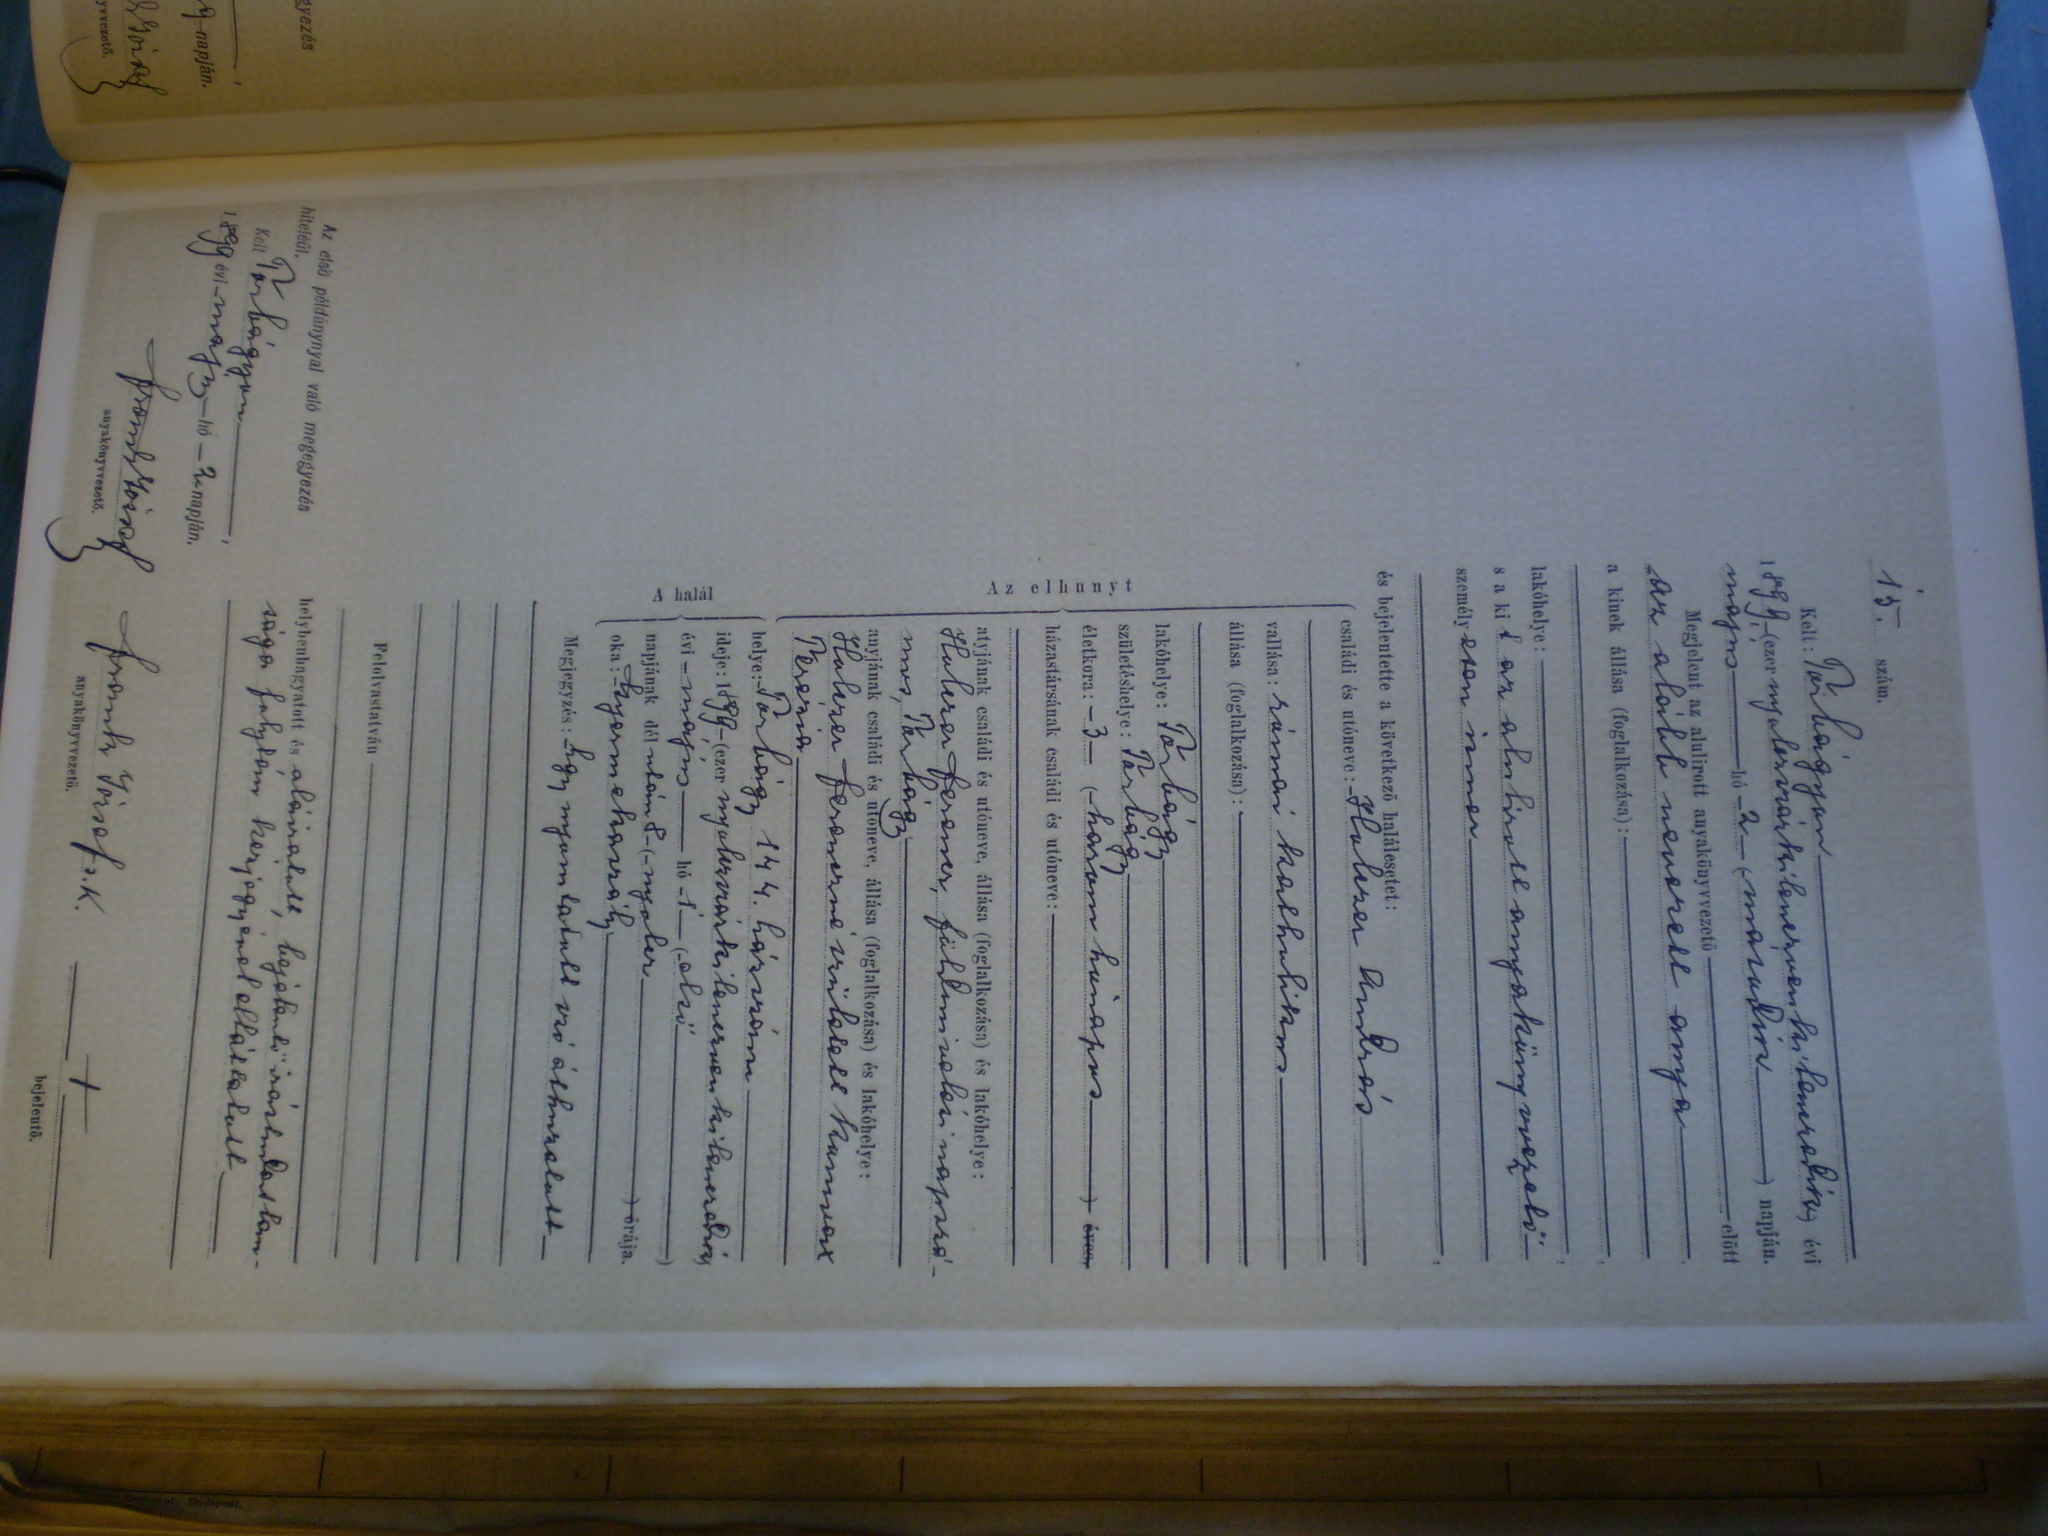 15. szám.
Kelt: Torbágyon
1899 (ezernyolczszázkilenczvenkilenczedik) évi
május hó 2 (második) napján.
Megjelent az alulirott anyakönyvvezető előtt
az alább nevezett anya
a kinek állása (foglalkozása):
lakóhelye:
s a kit az alulirott anyakönyvvezető
személyesen ismer
és bejelentette a következő halálesetet:
Az elhunyt
családi és utóneve: Huberer András
vallása: római katholikus
állása (foglalkozása):
lakóhelye: Torbágy
születéshelye: Torbágy
életkora: 3 (három hónapos) éves,
házastársának családi és utóneve:
atyjának családi és utóneve, állása (foglalkozása) és lakóhelye:
Huberer Ferencz, földmivelési napszá-
mos, Torbágy
anyjának családi és utóneve, állása (foglalkozása) és lakóhelye:
Huberer Ferenczné született
Terézia
A halál
helye: Torbágy 144. házszám
ideje: 1899 (ezernyolczszázkilenczvenkilenczedik)
évi május hó 1 (első)
napjának dél után 8 (nyolcz) órája.
oka: Gyermekaszály
Megjegyzés: Egy nyomtatott szó áthuzatott
Felolvastatván
helybenhagyatott és aláiratott, bejelentő irástudatlan-
sága folytán kézjegyével elláttatott
Az első példánynyal való megegyezés
hiteléül.
Kelt Torbágyon,
1899 évi május hó 2 napján.
József
anyakönyvvezető.
József s.k.
anyakönyvvezető.
+
bejelentő.
gyezés
napján.
yvvezető.
Budapest.